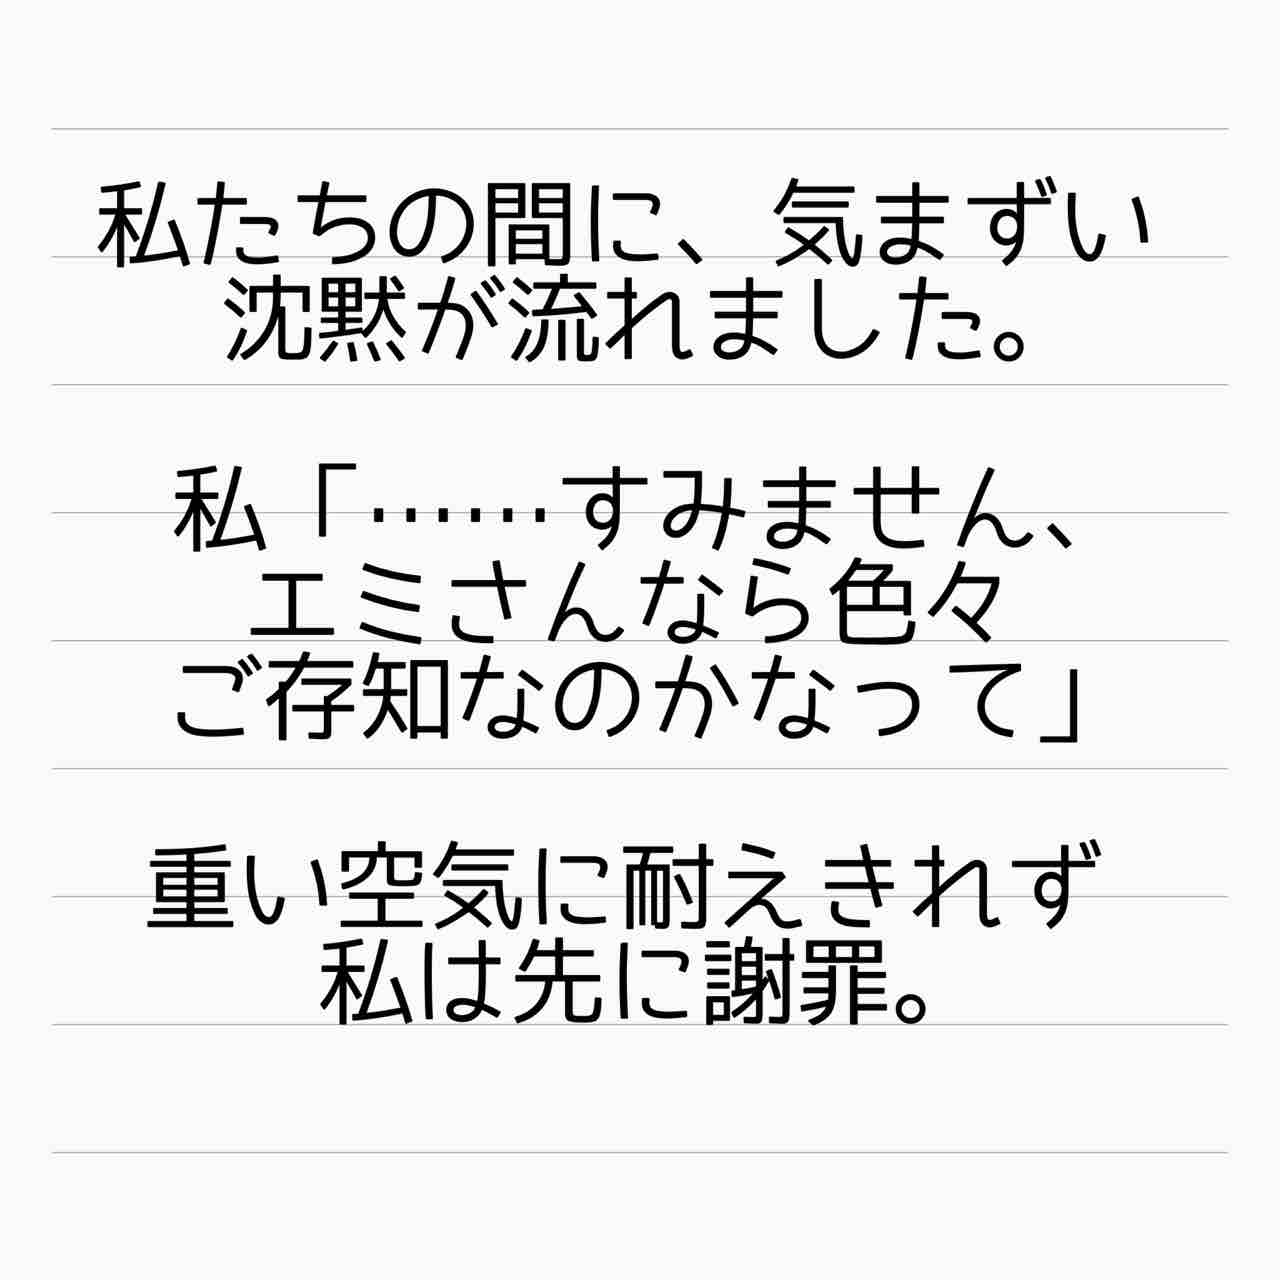 私たちの間に、気まずい
沈黙が流れました。
私「……すみません、
エミさんなら色々
ご存知なのかなって」
重い空気に耐えきれず
私は先に謝罪。